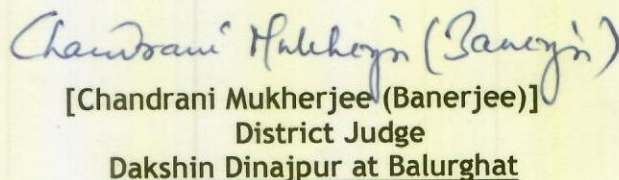 Chandrani Mukherji (Banerji)
[Chandrani Mukherjee (Banerjee)]
District Judge
Dakshin Dinajpur at Balurghat